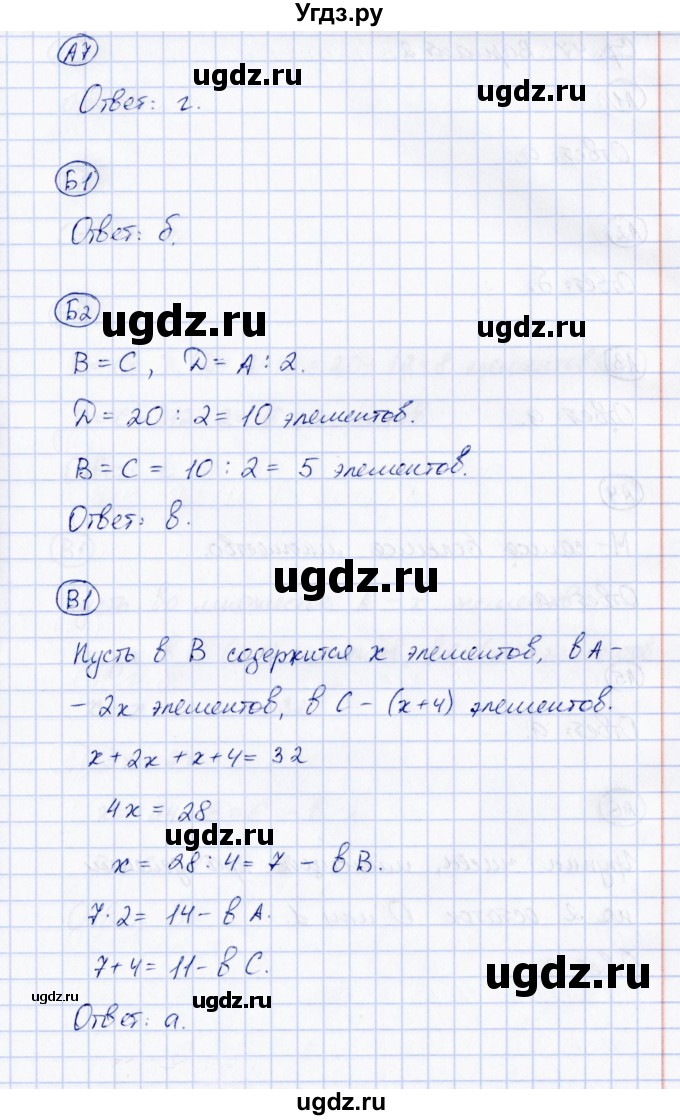 Угдз.ру
А7
ugdz.ru ugdz.ru
Ответ: г.
Б1
Ответ: б.
Б2
ugdz.ru ugdz.ru
B = C, D = A : 2.
D = 20 : 2 = 10 элементов.
B = C = 10 : 2 = 5 элементов.
Ответ: в.
ugdz.ru
В1
Пусть в B содержится x элементов, в A -
- 2x элементов, в C - (x+4) элементов.
x + 2x + x + 4 = 32
4x = 28
ugdz.ru
x = 28 : 4 = 7 - в B.
7 · 2 = 14 - в A.
7 + 4 = 11 - в C.
ugdz.ru
ugdz.ru ugdz.ru
Ответ: а.
ugdz.ru